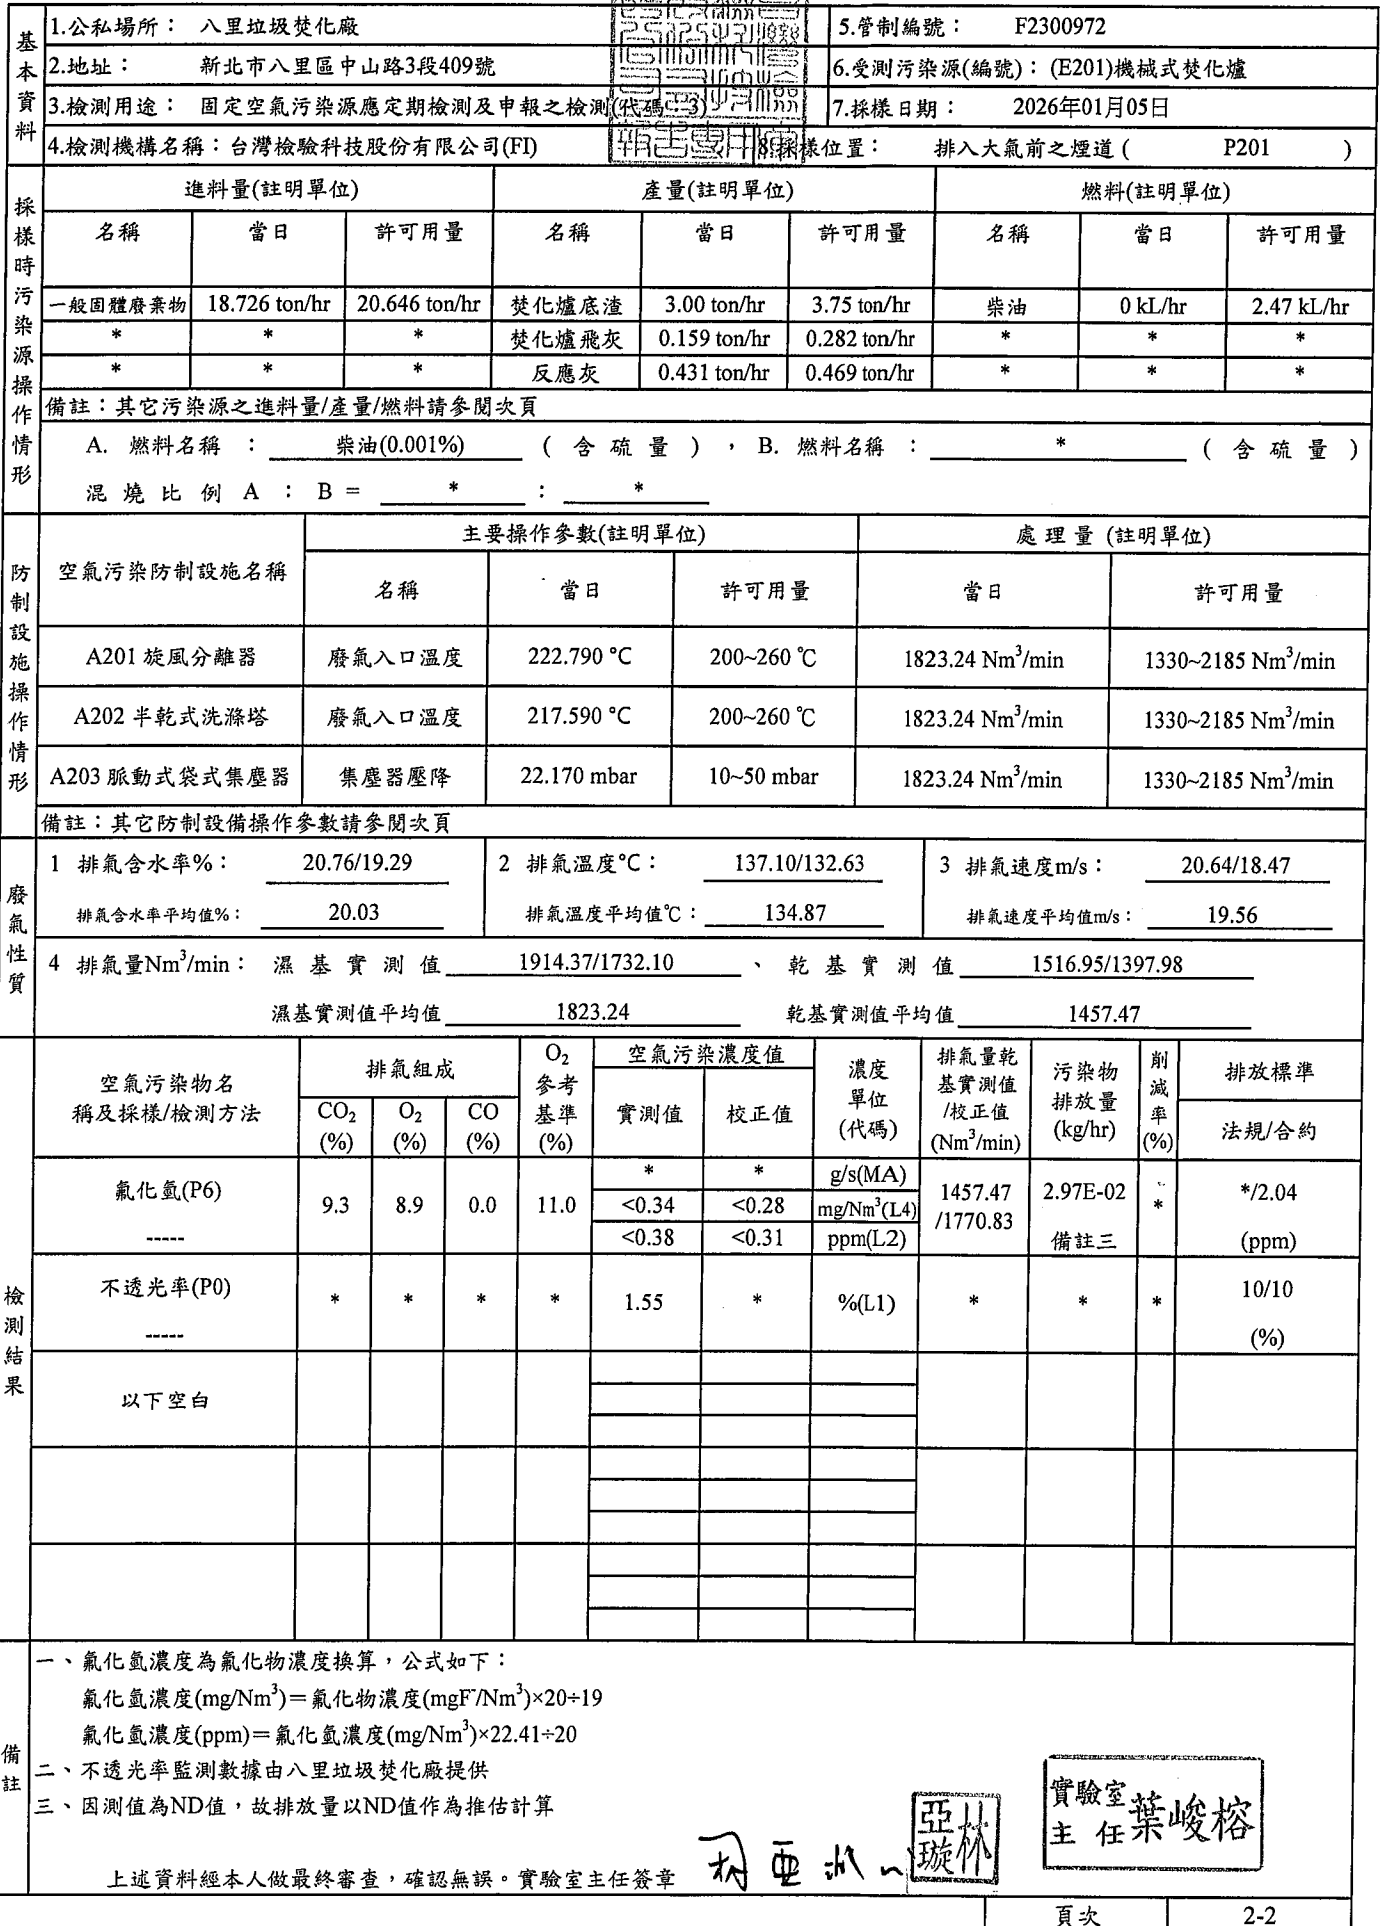 基本資料
1.公私場所： 八里垃圾焚化廠 5.管制編號： F2300972
2.地址： 新北市八里區中山路3段409號 6.受測污染源(編號)： (E201)機械式焚化爐
3.檢測用途： 固定空氣污染源應定期檢測及申報之檢測(代碼：3) 7.採樣日期： 2026年01月05日
4.檢測機構名稱：台灣檢驗科技股份有限公司(FI) 8.採樣位置： 排入大氣前之煙道 ( P201 )
採樣時污染源操作情形
進料量(註明單位) 產量(註明單位) 燃料(註明單位)
名稱 當日 許可用量 名稱 當日 許可用量 名稱 當日 許可用量
一般固體廢棄物 18.726 ton/hr 20.646 ton/hr 焚化爐底渣 3.00 ton/hr 3.75 ton/hr 柴油 0 kL/hr 2.47 kL/hr
* * * 焚化爐飛灰 0.159 ton/hr 0.282 ton/hr * * *
* * * 反應灰 0.431 ton/hr 0.469 ton/hr * * *
備註：其它污染源之進料量/產量/燃料請參閱次頁
A. 燃料名稱 ： 柴油(0.001%) ( 含 硫 量 ) ， B. 燃料名稱 ： * ( 含 硫 量 )
混 燒 比 例 A ： B = * ： *
防制設施操作情形
空氣污染防制設施名稱 主要操作參數(註明單位) 處理量 (註明單位)
名稱 當日 許可用量 當日 許可用量
A201 旋風分離器 廢氣入口溫度 222.790 ℃ 200~260 ℃ 1823.24 Nm³/min 1330~2185 Nm³/min
A202 半乾式洗滌塔 廢氣入口溫度 217.590 ℃ 200~260 ℃ 1823.24 Nm³/min 1330~2185 Nm³/min
A203 脈動式袋式集塵器 集塵器壓降 22.170 mbar 10~50 mbar 1823.24 Nm³/min 1330~2185 Nm³/min
備註：其它防制設備操作參數請參閱次頁
廢氣性質
1 排氣含水率%： 20.76/19.29 2 排氣溫度℃： 137.10/132.63 3 排氣速度m/s： 20.64/18.47
排氣含水率平均值%： 20.03 排氣溫度平均值℃： 134.87 排氣速度平均值m/s： 19.56
4 排氣量Nm³/min： 濕 基 實 測 值 1914.37/1732.10 、 乾 基 實 測 值 1516.95/1397.98
濕基實測值平均值 1823.24 乾基實測值平均值 1457.47
檢測結果
空氣污染物名稱及採樣/檢測方法 排氣組成 O₂參考基準(%) 空氣污染濃度值 濃度單位(代碼) 排氣量乾基實測值/校正值(Nm³/min) 污染物排放量(kg/hr) 削減率(%) 排放標準
CO₂(%) O₂(%) CO(%) 實測值 校正值 法規/合約
氟化氫(P6) ----- 9.3 8.9 0.0 11.0 * * g/s(MA) 1457.47/1770.83 2.97E-02 備註三 * */2.04 (ppm)
<0.34 <0.28 mg/Nm³(L4)
<0.38 <0.31 ppm(L2)
不透光率(P0) ----- * * * * 1.55 * %(L1) * * * 10/10 (%)
以下空白
備註
一、氟化氫濃度為氟化物濃度換算，公式如下：
氟化氫濃度(mg/Nm³)＝氟化物濃度(mgF⁻/Nm³)×20÷19
氟化氫濃度(ppm)＝氟化氫濃度(mg/Nm³)×22.41÷20
二、不透光率監測數據由八里垃圾焚化廠提供
三、因測值為ND值，故排放量以ND值作為推估計算
上述資料經本人做最終審查，確認無誤。實驗室主任簽章
林亞璇
實驗室主任 葉峻榕
頁次 2-2